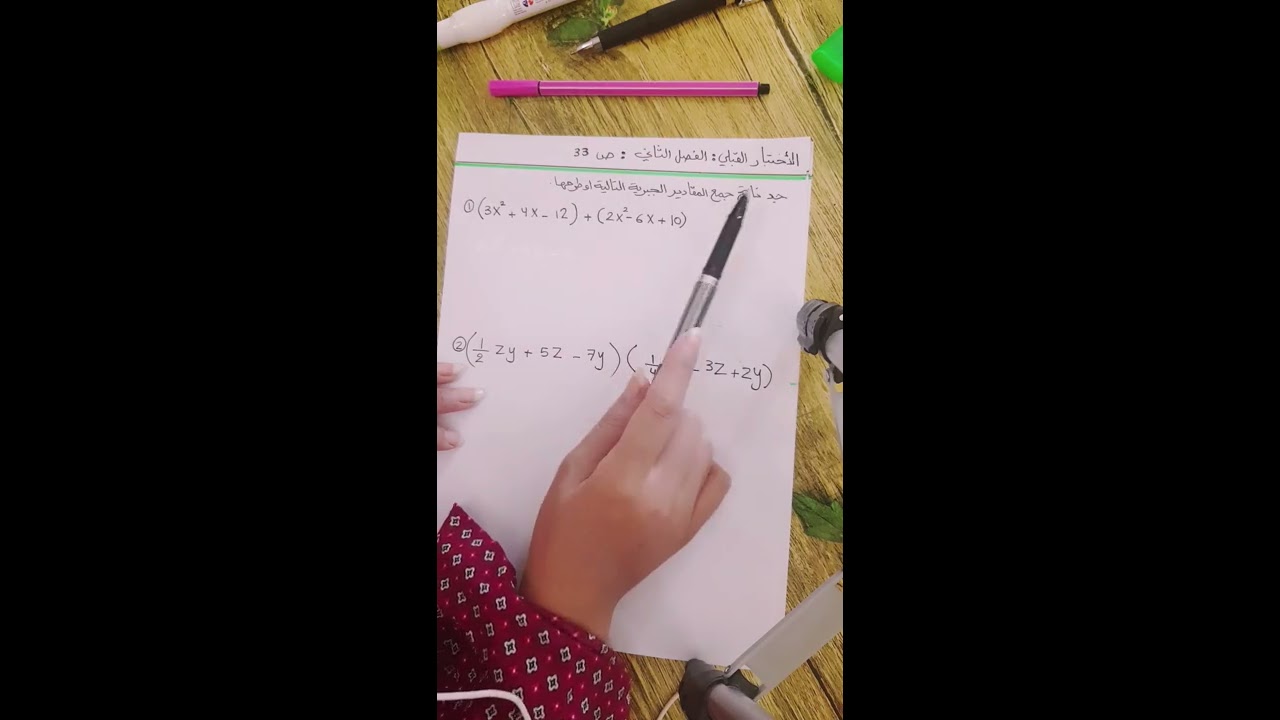 الأختبار القبلي: الفصل الثاني: ص 33
جد جمع المقادير الجبرية التالية او طرحها.
① (3x² + 4x - 12) + (2x² - 6x + 10)
② (1/2 zy + 5z - 7y) ( 1/4 - 3z + 2y)